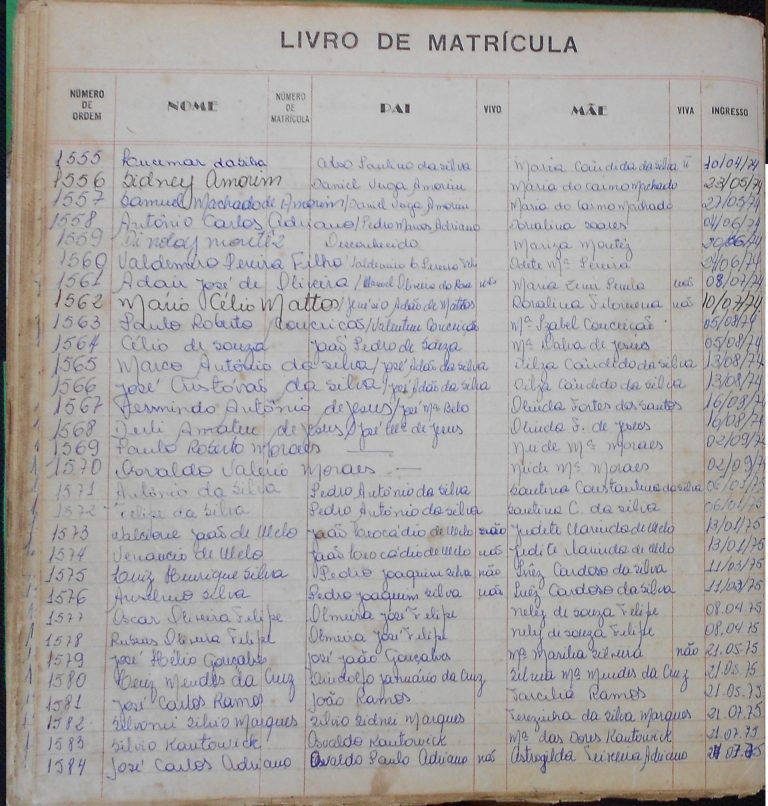 LIVRO DE MATRÍCULA
NÚMERO DE ORDEM NOME NÚMERO DE MATRÍCULA PAI VIVO MÃE VIVA INGRESSO
1555 da silva Paulino da silva Maria Candida da silva 10/04/74
1556 Sidney Amorim Daniel Veiga Amorim Maria do Carmo Machado 23/05/74
1557 Samuel Machado de Amorim / Daniel Veiga Amorim Maria do Carmo Machado 27/05/74
1558 Antônio Carlos Adriano / Pedro Adriano soares 04/06/74
1559 Desconhecido Mariza 20/06/74
1560 Valdemiro Pereira Filho / Valdemiro Pereira Odete Mª Pereira 24/06/74
1561 Adair José de Oliveira / Oliveira da Rosa Maria não 08/07/74
1562 Mario Célio Mattos / Adão de Mattos Doralina Filomena não 10/07/74
1563 Paulo Roberto Conceição / Valentim Conceição Mª Izabel Conceição 05/08/74
1564 Célio de souza João Pedro de Souza Mª Dalva de Jesus 05/08/74
1565 Marco Antônio da silva / José Adão da silva Dilza Candido da silva 13/08/74
1566 José Cristovão da silva / José Adão da silva Dilza Candido da silva 13/08/74
1567 Hermindo Antônio de Jesus / José Mª Olinda Fortes dos Santos 16/08/74
1568 de Jesus / José Mª de Jesus Olinda F. de Jesus 16/08/74
1569 Paulo Roberto Moraes — Neide Mª Moraes 02/09/74
1570 Osvaldo Valerio Moraes — Neide Mª Moraes 02/09/74
1571 Antônio da Silva Pedro Antônio da silva Santina Constantina da silva 06/01/75
1572 Felipe da Silva Pedro Antônio da silva santina C. da silva 06/01/75
1573 João de Melo João de Melo não Judite de Melo 13/01/75
1574 Venancio de Melo João de Melo não Judite de Melo 13/01/75
1575 Luiz Henrique Silva Pedro Joaquim silva não Inêz Cardoso da silva 11/03/75
1576 Anselmo Silva Pedro Joaquim silva não Inêz Cardoso da silva 11/03/75
1577 Oscar Oliveira Felipe Olmeira José Felipe Nely de souza Felipe 08.04.75
1578 Oliveira Felipe Olmeira José Felipe Nely de souza Felipe 08.04.75
1579 José Hélio Gonçalves José João Gonçalves Mª Marilia Silveira não 21.05.75
1580 Mendes da Cruz Januário da Cruz Silvia Mª Mendes da Cruz 21.05.75
1581 José Carlos Ramos João Ramos Tarcilia Ramos 21.05.75
1582 Silvio Marques Silvio Sidnei Marques Terezinha da Silva Marques 21.07.75
1583 Silvio Kantowick Osvaldo Kantowick Mª das Dores Kantowick 21.07.75
1584 José Carlos Adriano Osvaldo Paulo Adriano não Astrogilda Teixeira Adriano 21.07.75